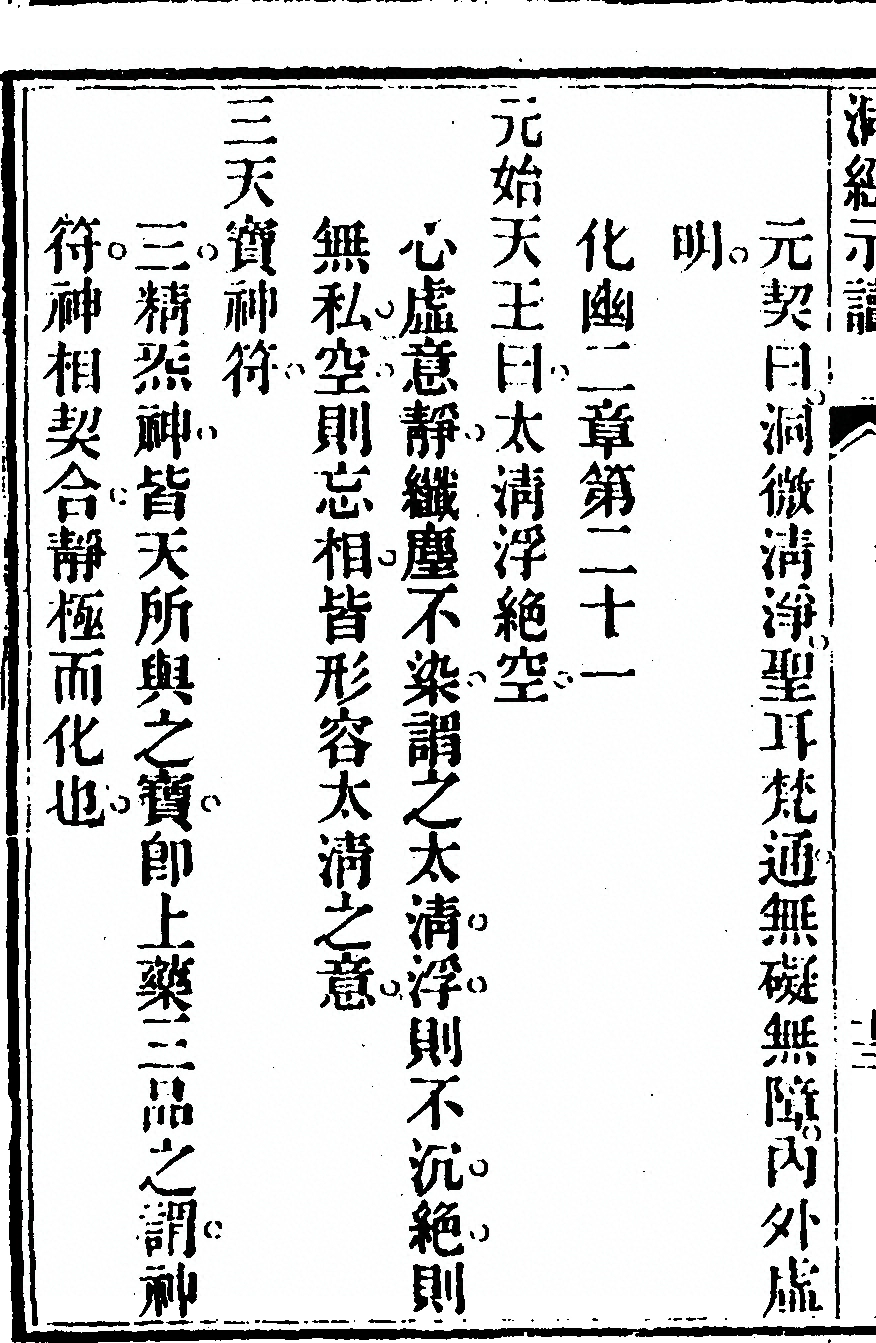 洞經示讀
元契曰洞微清淨聖耳梵通無礙無障內外虛
明
化幽二章第二十一
元始天王曰太清浮絕空
心虛意靜纖塵不染謂之太清浮則不沉絕則
無私空則忘相皆形容太清之意
三天寶神符
三精炁神皆天所與之寶卽上藥三品之謂神
符神相契合靜極而化也